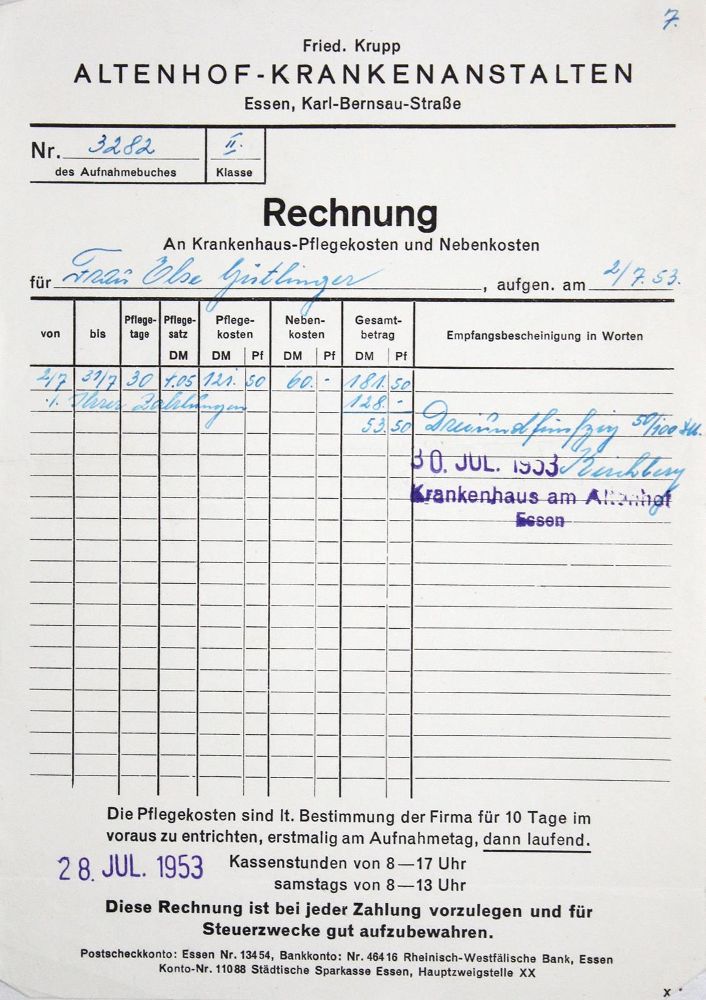 7.
Fried. Krupp
ALTENHOF-KRANKENANSTALTEN
Essen, Karl-Bernsau-Straße
Nr. 3282 II.
des Aufnahmebuches Klasse
Rechnung
An Krankenhaus-Pflegekosten und Nebenkosten
für Frau Else Gütlinger, aufgen. am 2/7.53.
von bis Pflege-tage Pflege-satz Pflege-kosten Neben-kosten Gesamt-betrag Empfangsbescheinigung in Worten
DM DM Pf DM Pf DM Pf
2/7 31/7 30 4.05 121. 50 60.- 181. 50
./. Ihrer Zahlungen 128.-
53. 50 Dreiundfünfzig 50/100 DM.
30. JUL. 1953 Kirchberg
Krankenhaus am Altenhof
Essen
Die Pflegekosten sind lt. Bestimmung der Firma für 10 Tage im
voraus zu entrichten, erstmalig am Aufnahmetag, dann laufend.
28. JUL. 1953 Kassenstunden von 8—17 Uhr
samstags von 8—13 Uhr
Diese Rechnung ist bei jeder Zahlung vorzulegen und für
Steuerzwecke gut aufzubewahren.
Postscheckkonto: Essen Nr. 13454, Bankkonto: Nr. 46416 Rheinisch-Westfälische Bank, Essen
Konto-Nr. 11088 Städtische Sparkasse Essen, Hauptzweigstelle XX
x